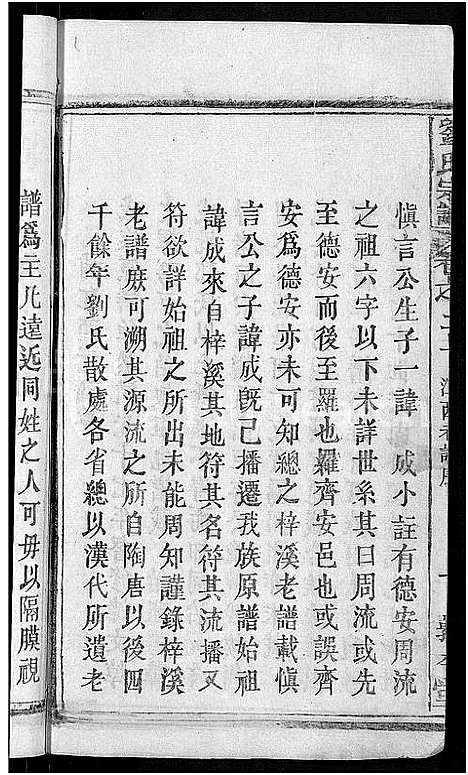 劉氏宗譜
卷之二十
慎言公生子一諱 成小註有德安周流
之祖六字以下未詳世系其曰周流或先
至德安而後至羅也羅齊安邑也或誤齊
安爲德安亦未可知總之梓溪老譜載慎
言公之子諱成旣已播遷我族原譜始祖
諱成來自梓溪其地符其名符其流播又
符欲詳始祖之所出未能周知謹錄梓溪
老譜庶可溯其源流之所自陶唐以後四
千餘年劉氏散處各省總以漢代所遺老
譜爲主凡遠近同姓之人可毋以隔膜視